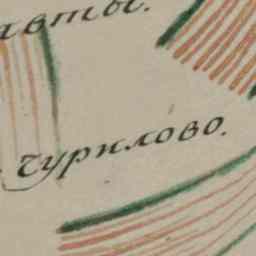 авты.
чурилово.